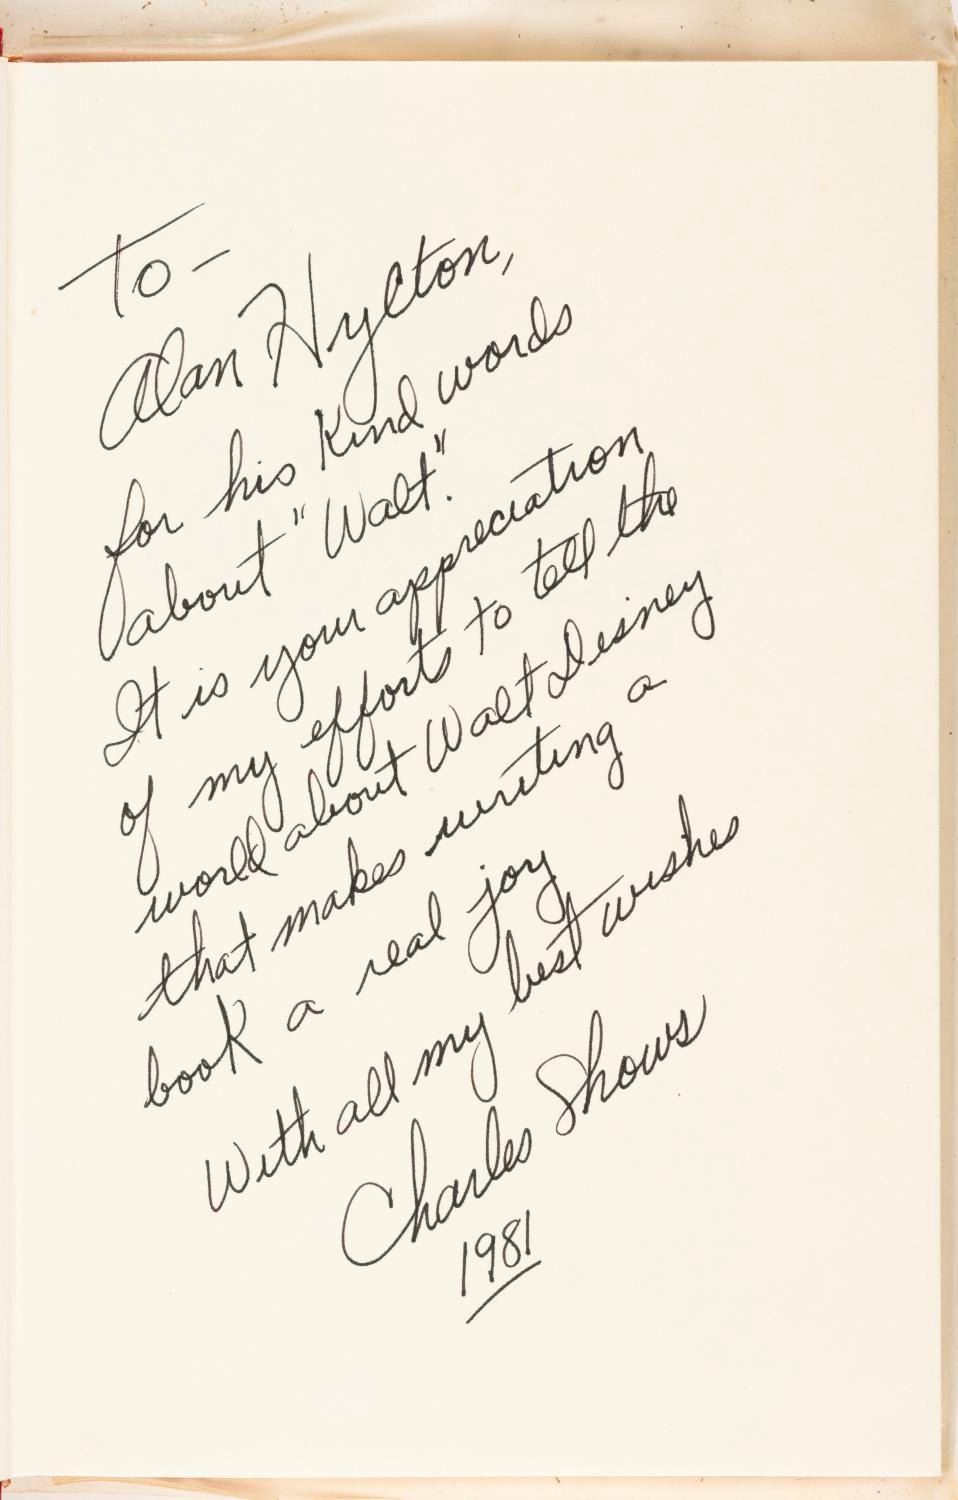 To-
Alan Hylton,
for his kind words
about "Walt".
It is your appreciation
of my efforts to tell the
world about Walt Disney
that makes writing a
book a real joy
With all my best wishes
Charles Shows
1981